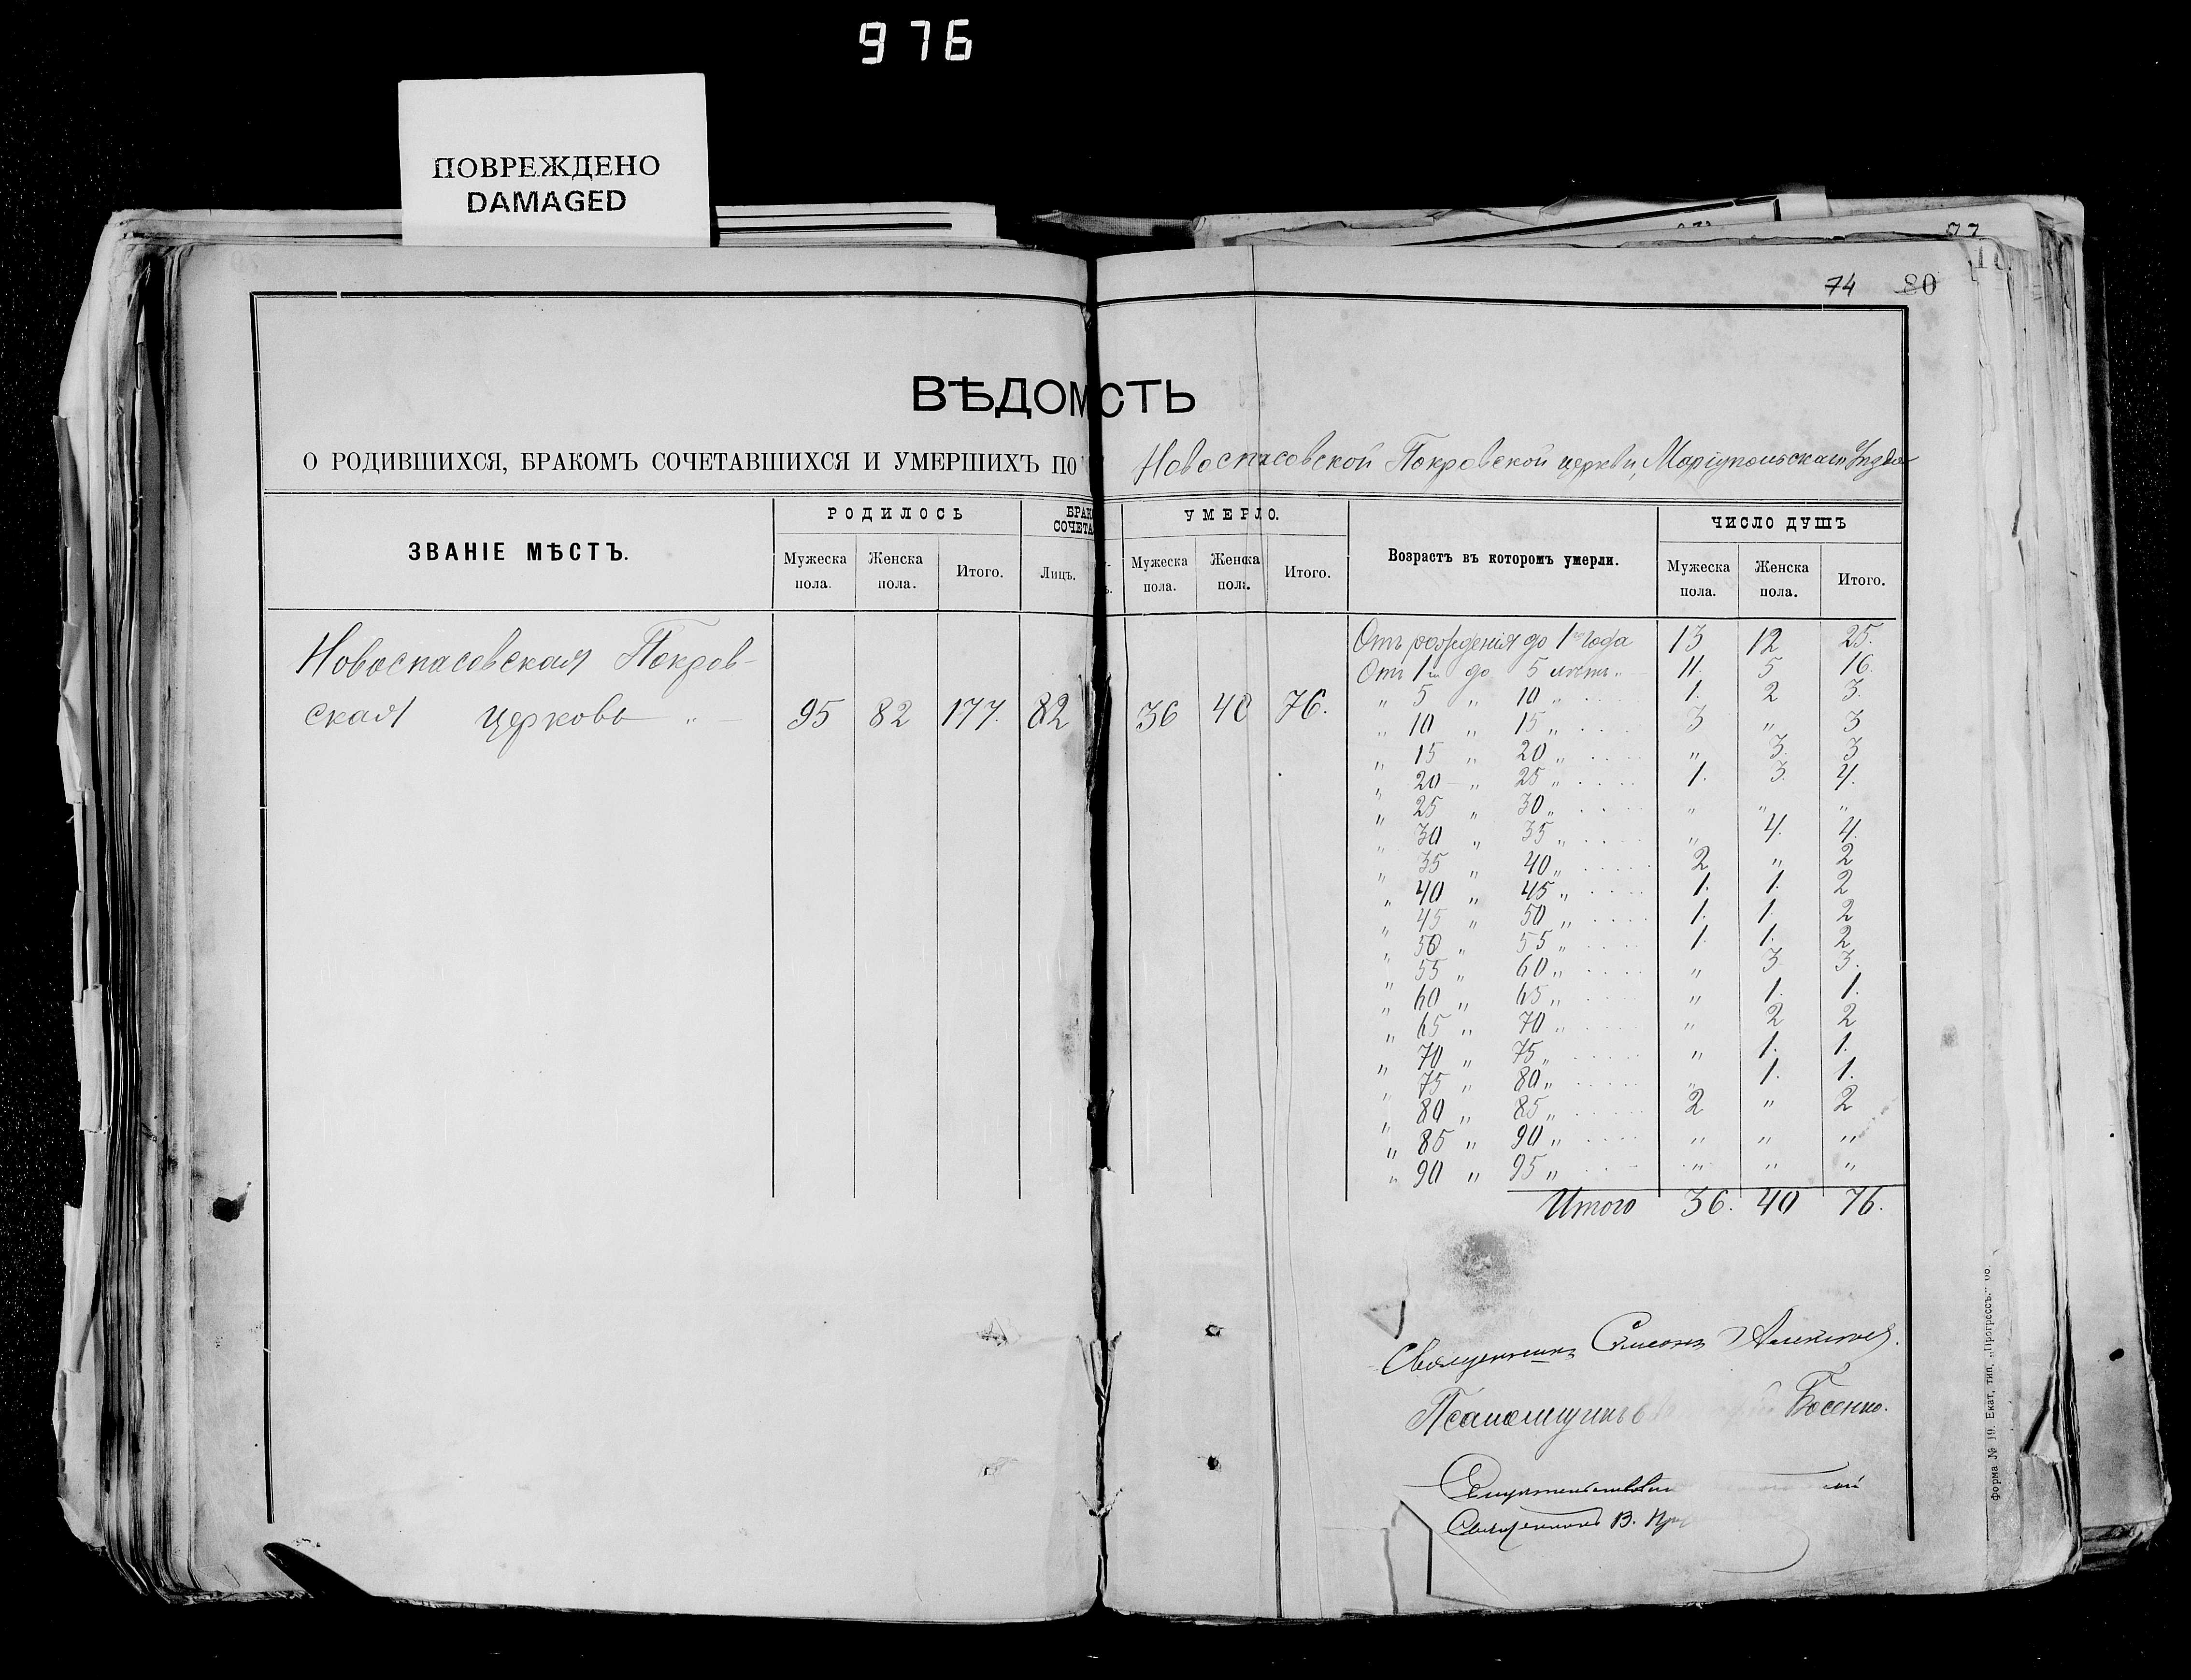 976
ПОВРЕЖДЕНО
DAMAGED
77
74 80
ВѢДОМСТЬ
О РОДИВШИХСЯ, БРАКОМЪ СОЧЕТАВШИХСЯ И УМЕРШИХЪ ПО Новоспасовской Покровской церкви, Маріупольскаго Уѣзда
ЗВАНІЕ МѢСТЪ. РОДИЛОСЬ БРАК СОЧЕТА УМЕРЛО. Возрастъ въ которомъ умерли. ЧИСЛО ДУШЪ
Мужеска пола. Женска пола. Итого. Лицъ. Мужеска пола. Женска пола. Итого. Мужеска пола. Женска пола. Итого.
Новоспасовская Покров-
ская церковь „ 95 82 177. 82 36 40 76.
Отъ рожденія до 1 года 13 12 25.
Отъ 1 до 5 лѣтъ „ 11 5 16.
„ 5 „ 10 „ 1. 2 3.
„ 10 „ 15 „ 3 „ 3
„ 15 „ 20 „ „ 3. 3
„ 20 „ 25 „ 1. 3. 4.
„ 25 „ 30 „ „ „ „
„ 30 „ 35 „ „ 4. 4.
„ 35 „ 40 „ 2 „ 2
„ 40 „ 45 „ 1. 1. 2
„ 45 „ 50 „ 1. 1. 2
„ 50 „ 55 „ 1. 1. 2
„ 55 „ 60 „ „ 3. 3.
„ 60 „ 65 „ „ 1. 1.
„ 65 „ 70 „ „ 2 2
„ 70 „ 75 „ „ 1. 1.
„ 75 „ 80 „ „ 1. 1.
„ 80 „ 85 „ 2 „ 2
„ 85 „ 90 „ „ „ „
„ 90 „ 95 „ „ „ „
Итого 36. 40 76.
Священникъ Симеонъ
Псаломщикъ Босенко.
Священникъ В.
Форма № 19. Екат, тип. „Прогрессъ."